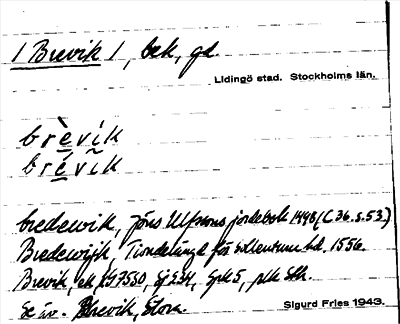 1 Brevik 1, bek, gd.
Lidingö stad. Stockholms län.
brèvík
brévĩk
bredewik, Jöns Ulfssons jordebok 1498 (C 36. s. 53.)
Bredewijk, Tiondelängd för Sollentuna hd. 1556.
Brevik, ek
Se äv. Brevik, Stora.
Sigurd Fries 1943.